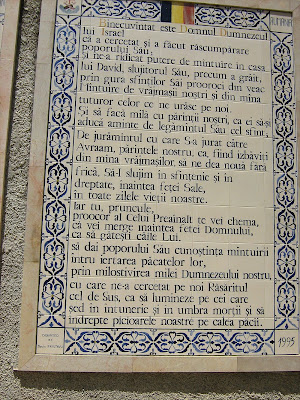 ROMANA
Binecuvîntat este Domnul Dumnezeul
lui Israel
că a cercetat și a făcut răscumpărare
poporului Său,
Și ne-a ridicat putere de mîntuire în casa
lui David, slujitorul Său, precum a grăit
prin gura sfinților Săi prooroci din veac
Mîntuire de vrăjmașii noștri și din mîna
tuturor celor ce ne urăsc pe noi
Și să facă milă cu părinții noștri, ca ei să-și
aducă aminte de legămîntul Său cel sfînt,
De jurămîntul cu care S-a jurat către
Avraam, părintele nostru, ca, fiind izbăviți
din mîna vrăjmașilor, să ne dea nouă fără
frică, Să-I slujim în sfințenie și în
dreptate, înaintea feței Sale,
în toate zilele vieții noastre.
Iar tu, pruncule,
prooroc al Celui Preaînalt te vei chema,
că vei merge înaintea feței Domnului,
ca să gătești căile Lui,
să dai poporului Său cunoștința mîntuirii
întru iertarea păcatelor lor,
prin milostivirea milei Dumnezeului nostru,
cu care ne-a cercetat pe noi Răsăritul
cel de Sus, ca să lumineze pe cei care
șed în întuneric și în umbra morții și să
îndrepte picioarele noastre pe calea păcii.
1995